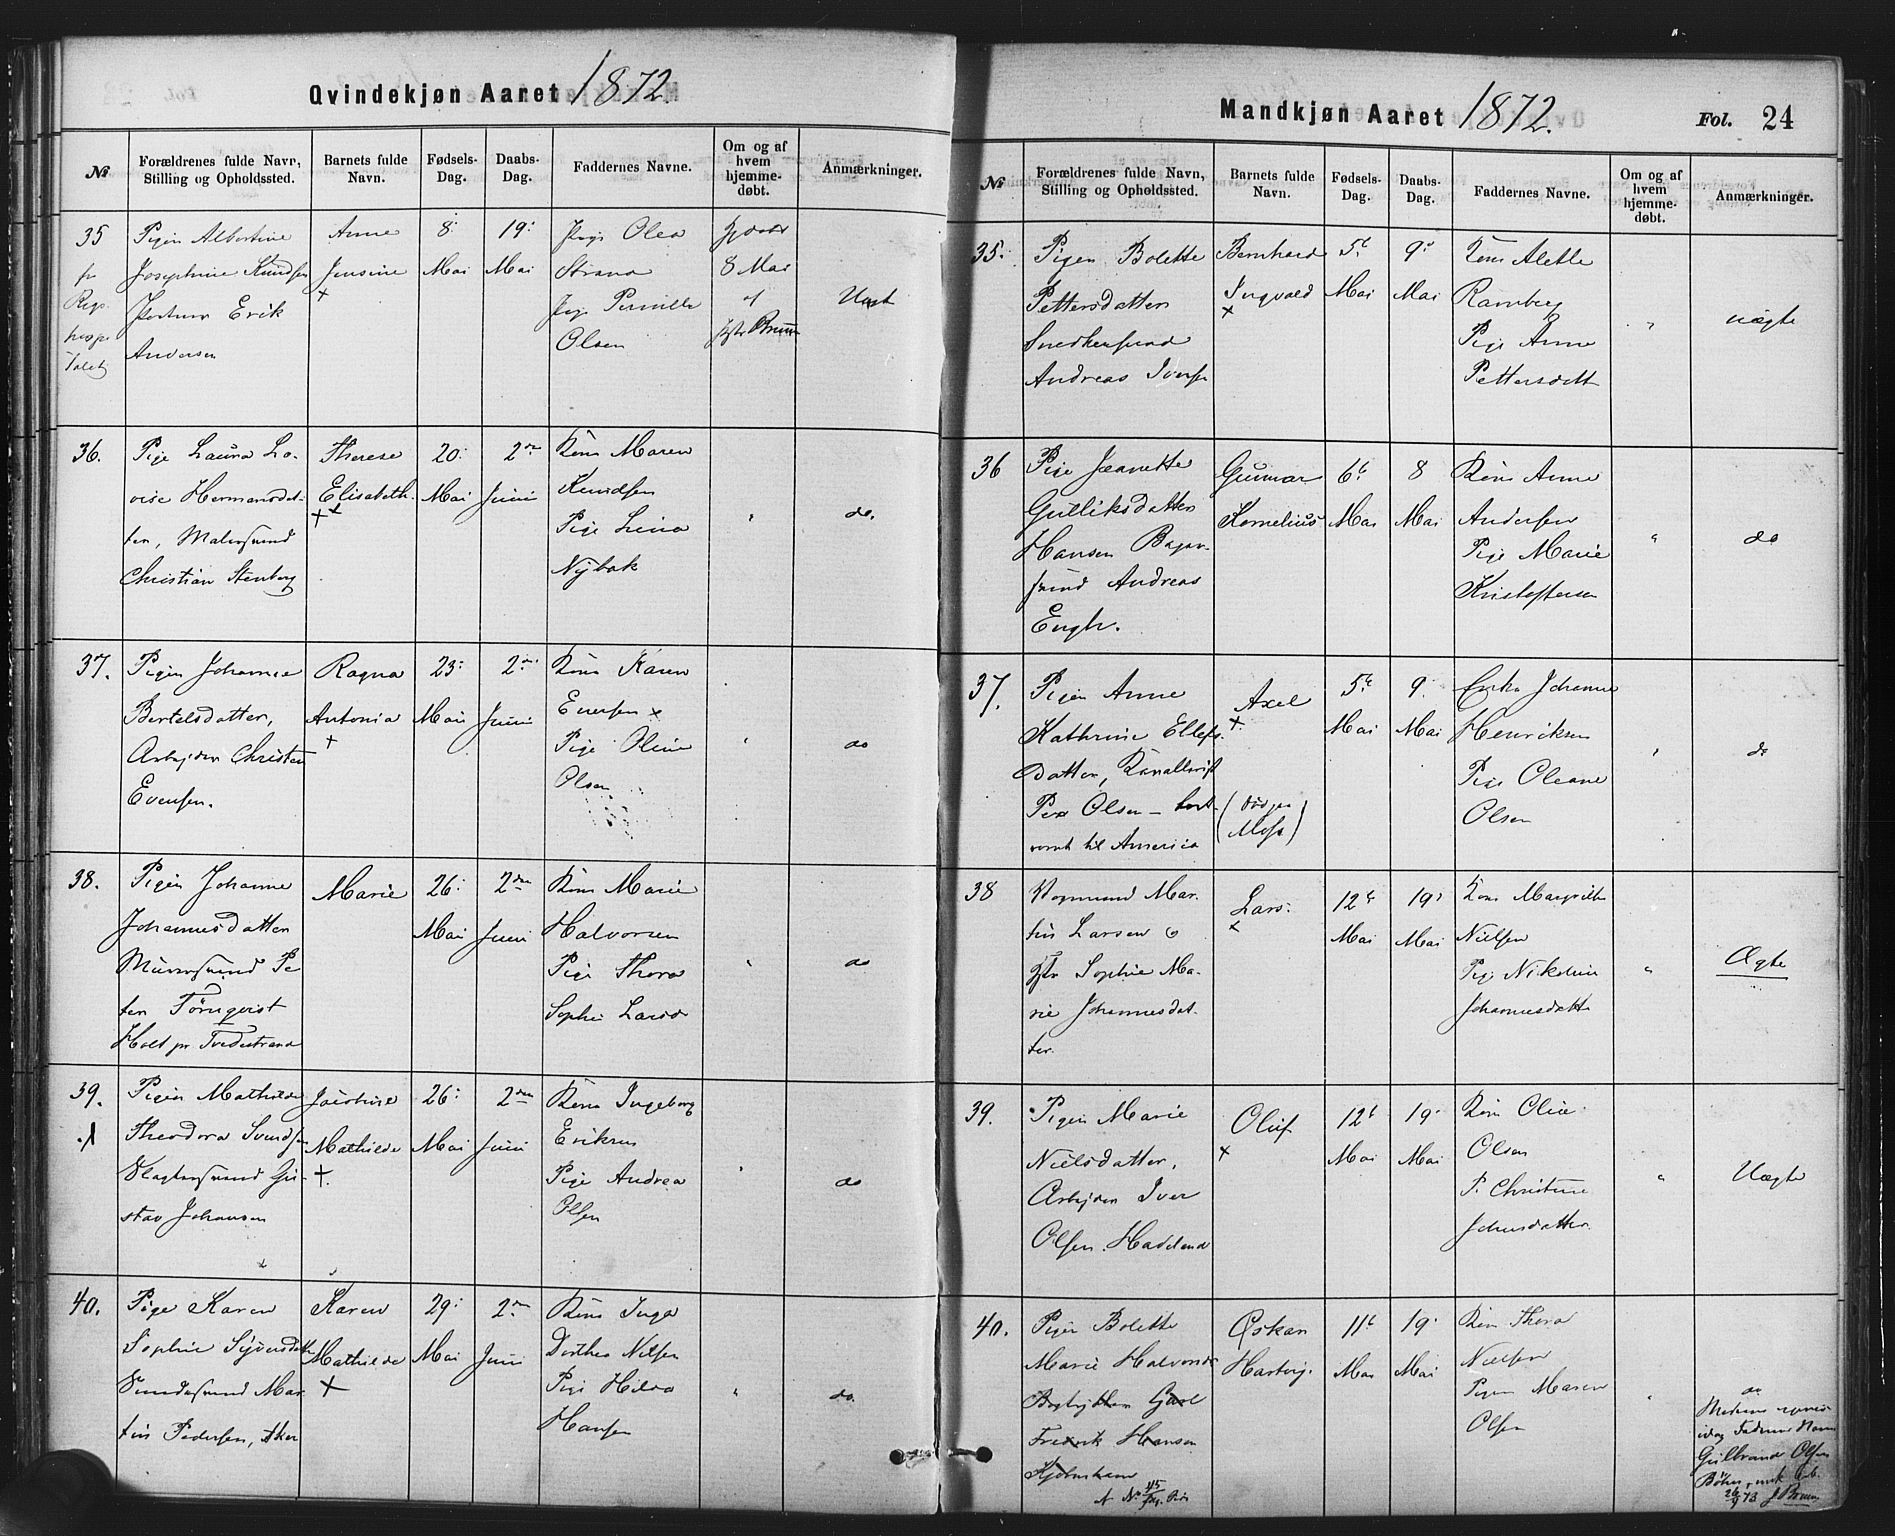 Qvindekjøn Aaret 1872.
№ Forældrenes fulde Navn, Stilling og Opholdssted. Barnets fulde Navn. Fødsels-Dag. Daabs-Dag. Faddernes Navne. Om og af hvem hjemme-døbt. Anmærkninger.
35
Pigen Albertine
Josephine Knudsen
Erik
Andersen
Anne
Jensine
8
Mai
19
Mai
Pige Olea
Pige Pernille
Olsen
8 Mai
af
Uægt
36.
Pige Laura Lo-
vise Hermansdat-
ter, Malersvend
Christian Stenberg
Therese
Elisabeth
20
Mai
2den
Juni
Kone Maren
Knudsen
Pige Lina
Nybak
"
do.
37.
Pigen Johanne
Bertelsdatter,
Arbejder Christen
Evensen.
Ragna
Antonia
23
Mai
2
Juni
Kone Karen
Evensen
Pige Oline
Olsen
"
do
38.
Pigen Johanne
Johannesdatter
Murersvend Pe
ter Törnqvist
Holt pr Tvedestrand
Marie
26
Mai
2den
Juni
Kone Marie
Halvorsen
Pige Thora
Sophie Larsd
"
do
39.
Pigen Mathilde
Theodora Svends
Slagtersvend Gu-
stav Johansen
Jacobine
Mathilde
26
Mai
2den
Juni
Kone Ingeborg
Eriksen
Pige Andrea
Olsen
"
do
40.
Pige Karen
Sophie Syversdatt
Martin Pedersen, Aker
Karen
Mathilde
29
Mai
2
Juni
Kone Inga
Dorthea Nilsen
Pige Hilda
Hansen
"
do.
Mandkjøn Aaret 1872. Fol. 24
№ Forældrenes fulde Navn, Stilling og Opholdssted. Barnets fulde Navn. Fødsels-Dag. Daabs-Dag. Faddernes Navne. Om og af hvem hjemme-døbt. Anmærkninger.
35.
Pigen Bolette
Pettersdatter
Snedkersvend
Andreas Iversen
Bernhard
Ingvald
5
Mai
9
Mai
Kone Alette
Ramberg
Pige Anne
Pettersdatt
"
uægte
36
Pige Jeanette
Gulliksdatter
Hansen Bager-
svend Andreas
Engh.
Gunnar
Kornelius
6
Mai
8
Mai
Kone Anne
Andersen
Pige Marie
Kristoffersen
"
do
37.
Pigen Anne
Kathrine Ellefs-
datter,
Per Olsen - bort-
reist til America
Axel
Moss)
5
Mai
9
Mai
Enke Johanne
Henriksen
Pige Oleane
Olsen
"
do
38
Vognmand Mar-
tin Larsen o
Sophie Ma-
rie Johannesdat-
ter.
Lars
12
Mai
19
Mai
Kone Margrethe
Nielsen
Pige Nikoline
Johannesdatt
"
Ægte
39.
Pigen Marie
Nielsdatter,
Arbejder Iver
Olsen. Hadeland
Oluf
12
Mai
19
Mai
Kone Oline
Olsen
P. Christine
Johnsdatter
"
Uægte
40.
Pigen Bolette
Marie Halvorsd
Carl
Fredrik Hansen
Kjøbenhavn
Oskar
Hartvig
11
Mai
19
Mai
Kone Thora
Nielsen
Pigen Maren
Olsen
"
do
Moderen
idag Faderens Navn
Gulbrand Olsen
26/9 73 J Bruun